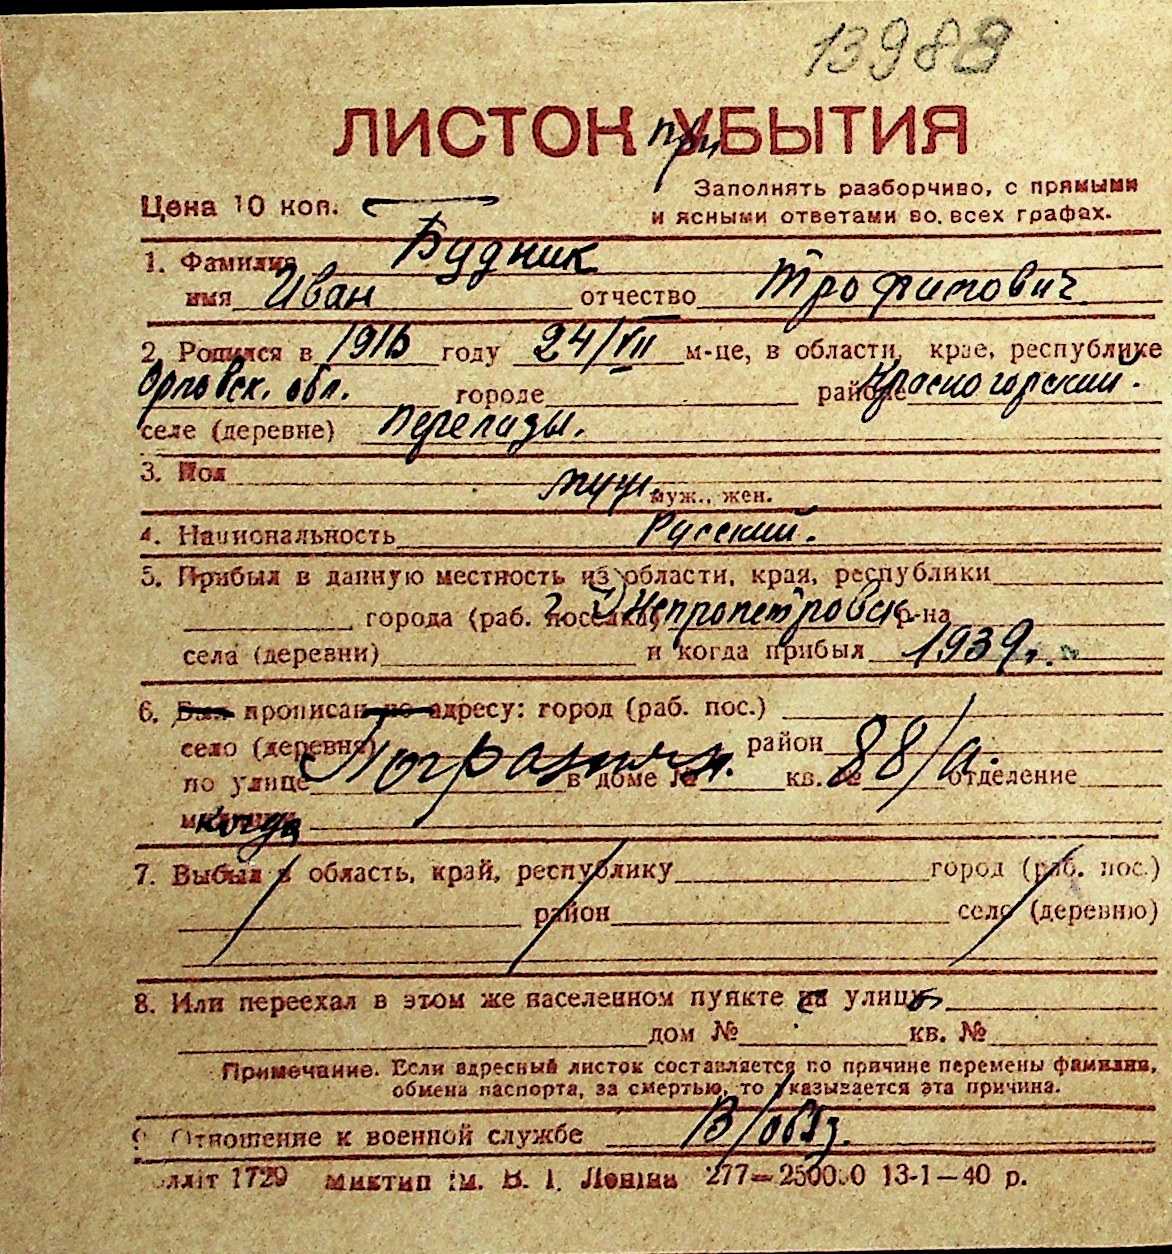 13988
ЛИСТОК при УБЫТИЯ
Цена 10 коп.
Заполнять разборчиво, с прямыми
и ясными ответами во всех графах.
1. Фамилия Будник
имя Иван отчество Трофимович
2. Родился в 1915 году 24/VII м-це, в области, крае, республике
Орловск. обл. городе районе Красногорский.
селе (деревне) Перелазы.
3. Пол муж. муж., жен.
4. Национальность Русский.
5. Прибыл в данную местность из области, края, республики
города (раб. поселка) г. Днепропетровск р-на
села (деревни) и когда прибыл 1939 г.
6. Был прописан по адресу: город (раб. пос.)
село (деревня) район
по улице Погранич. в доме № кв. № 88/а. отделение
когда
7. Выбыл в область, край, республику город (раб. пос.)
район село (деревню)
8. Или переехал в этом же населенном пункте с улицы
дом № кв. №
Примечание. Если адресный листок составляется по причине перемены фамилии,
обмена паспорта, за смертью, то указывается эта причина.
9. Отношение к военной службе В/обяз.
лліт 1729 Миктип ім. В. І. Леніна 277—250000 13-1—40 р.